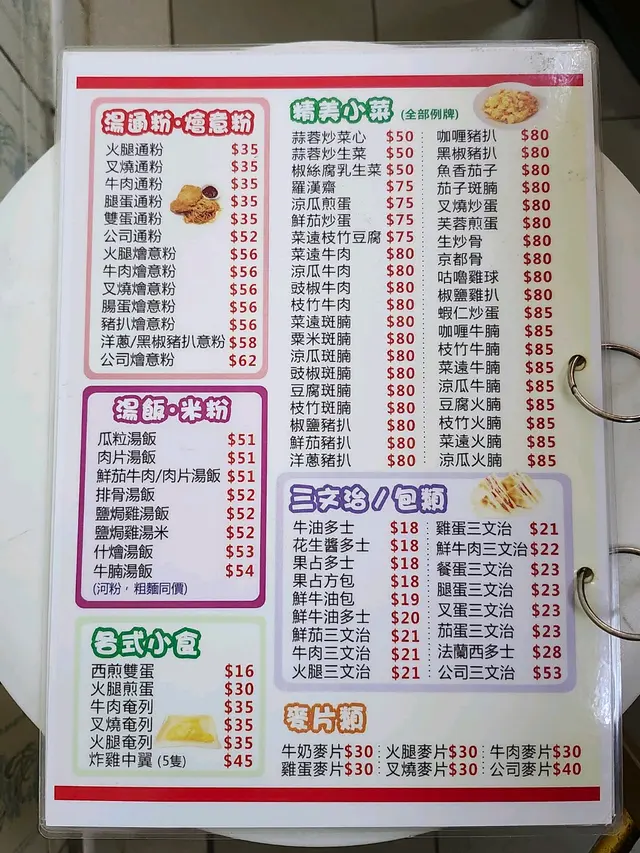 湯通粉·燴意粉
火腿通粉 $35
叉燒通粉 $35
牛肉通粉 $35
腿蛋通粉 $35
雙蛋通粉 $35
公司通粉 $52
火腿燴意粉 $56
牛肉燴意粉 $56
叉燒燴意粉 $56
腸蛋燴意粉 $56
豬扒燴意粉 $56
洋蔥/黑椒豬扒意粉 $58
公司燴意粉 $62
湯飯·米粉
瓜粒湯飯 $51
肉片湯飯 $51
鮮茄牛肉/肉片湯飯 $51
排骨湯飯 $52
鹽焗雞湯飯 $52
鹽焗雞湯米 $52
什燴湯飯 $53
牛腩湯飯 $54
(河粉，粗麵同價)
各式小食
西煎雙蛋 $16
火腿煎蛋 $30
牛肉奄列 $35
叉燒奄列 $35
火腿奄列 $35
炸雞中翼 (5隻) $45
精美小菜 (全部例牌)
蒜蓉炒菜心 $50
蒜蓉炒生菜 $50
椒絲腐乳生菜 $50
羅漢齋 $75
涼瓜煎蛋 $75
鮮茄炒蛋 $75
菜遠枝竹豆腐 $75
菜遠牛肉 $80
涼瓜牛肉 $80
豉椒牛肉 $80
枝竹牛肉 $80
菜遠斑腩 $80
粟米斑腩 $80
涼瓜斑腩 $80
豉椒斑腩 $80
豆腐斑腩 $80
枝竹斑腩 $80
椒鹽豬扒 $80
鮮茄豬扒 $80
洋蔥豬扒 $80
咖喱豬扒 $80
黑椒豬扒 $80
魚香茄子 $80
茄子斑腩 $80
叉燒炒蛋 $80
芙蓉煎蛋 $80
生炒骨 $80
京都骨 $80
咕嚕雞球 $80
椒鹽雞扒 $80
蝦仁炒蛋 $85
咖喱牛腩 $85
枝竹牛腩 $85
菜遠牛腩 $85
涼瓜牛腩 $85
豆腐火腩 $85
枝竹火腩 $85
菜遠火腩 $85
涼瓜火腩 $85
三文治/包類
牛油多士 $18
花生醬多士 $18
果占多士 $18
果占方包 $18
鮮牛油包 $19
鮮牛油多士 $20
鮮茄三文治 $21
牛肉三文治 $21
火腿三文治 $21
雞蛋三文治 $21
鮮牛肉三文治 $22
餐蛋三文治 $23
腿蛋三文治 $23
叉蛋三文治 $23
茄蛋三文治 $23
法蘭西多士 $28
公司三文治 $53
麥片類
牛奶麥片 $30 火腿麥片 $30 牛肉麥片 $30
雞蛋麥片 $30 叉燒麥片 $30 公司麥片 $40